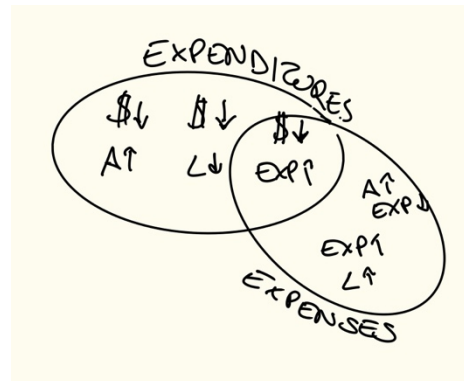 EXPENDITURES
$↓ $↓ $↓
A↑ L↓ EXP↑
A↑
EXP↓
EXP↑
L↑
EXPENSES